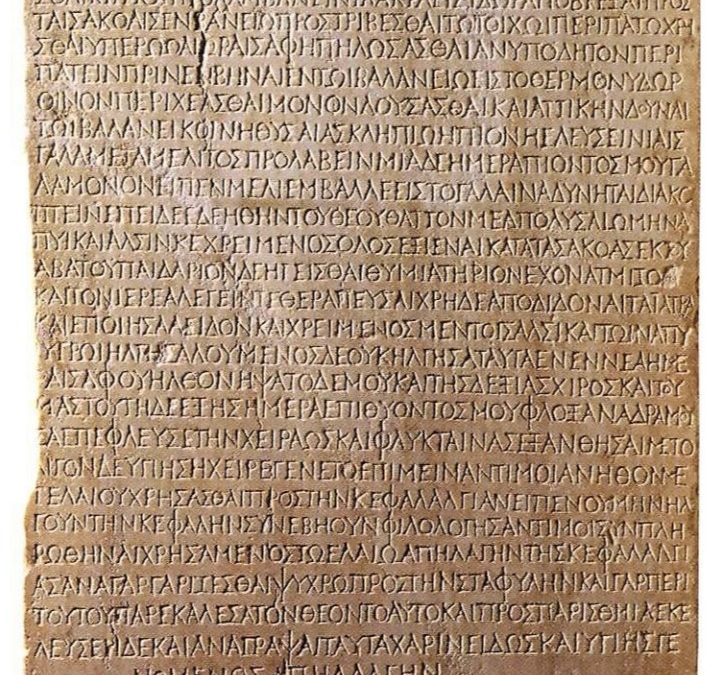 ΤΑΙΣΑΚΟΑΙΣΕΝΒΑΛΑΝΕΙΩΠΡΟΣΤΡΙΒΕΣΘΑΙΤΩΙΤΟΙΧΩΙΠΕΡΙΠΑΤΩΧΡΗ
ΣΘΑΙΥΠΕΡΩΩΑΙΩΡΑΙΣΑΦΗΠΗΛΩΣΑΣΘΑΙΑΝΥΠΟΔΗΤΟΝΠΕΡΙ
ΠΑΤΕΙΝΠΡΙΝΕΝΒΗΝΑΙΕΝΤΩΙΒΑΛΑΝΕΙΩΙΕΙΣΤΟΘΕΡΜΟΝΥΔΩΡ
ΟΙΝΟΝΠΕΡΙΧΕΑΣΘΑΙΜΟΝΟΝΛΟΥΣΑΣΘΑΙΚΑΙΑΤΤΙΚΗΝΔΟΥΝΑΙ
ΤΩΙΒΑΛΑΝΕΙΚΟΙΝΗΘΥΣΑΙΑΣΚΛΗΠΙΩΗΠΙΟΝΗΕΛΕΥΣΕΙΝΙΑΙΣ
ΓΑΛΑΜΕΤΑΜΕΛΙΤΟΣΠΡΟΛΑΒΕΙΝΜΙΑΔΕΗΜΕΡΑΠΙΟΝΤΟΣΜΟΥΓΑ
ΛΑΜΟΝΟΝΕΙΠΕΝΜΕΛΙΕΜΒΑΛΛΕΕΙΣΤΟΓΑΛΑΙΝΑΔΥΝΗΤΑΙΔΙΑΚΟ
ΠΤΕΙΝΕΠΕΙΔΕΕΔΕΗΘΗΝΤΟΥΘΕΟΥΘΑΤΤΟΝΜΕΑΠΟΛΥΣΑΙΩΜΗΝΑ
ΠΥΙΚΑΙΑΛΣΙΝΚΕΧΡΕΙΜΕΝΟΣΟΛΟΣΕΞΙΕΝΑΙΚΑΤΑΤΑΣΑΚΟΑΣΕΚΤΟΥ
ΑΒΑΤΟΥΠΑΙΔΑΡΙΟΝΔΕΗΓΕΙΣΘΑΙΘΥΜΙΑΤΗΡΙΟΝΕΧΟΝΑΤΜΙΖΟ
ΚΑΙΤΟΝΙΕΡΕΑΛΕΓΕΙΝΤΕΘΕΡΑΠΕΥΣΑΙΧΡΗΔΕΑΠΟΔΙΔΟΝΑΙΤΑΙΑΤΡΑ
ΚΑΙΕΠΟΙΗΣΑΑΕΙΔΟΝΚΑΙΧΡΕΙΜΕΝΟΣΜΕΝΤΟΙΣΑΛΣΙΚΑΙΤΩΙΝΑΠΥ
ΥΓΡΩΙΗΛΓΗΣΑΛΟΥΜΕΝΟΣΔΕΟΥΚΗΛΓΗΣΑΤΑΥΤΑΕΝΕΝΝΕΑΗΜΕ
ΡΑΙΣΑΦΟΥΗΛΘΟΝΗΨΑΤΟΔΕΜΟΥΚΑΙΤΗΣΔΕΞΙΑΣΧΙΡΟΣΚΑΙΤΟΥ
ΜΑΣΤΟΥΤΗΔΕΕΞΗΣΗΜΕΡΑΕΠΙΘΥΟΝΤΟΣΜΟΥΦΛΟΞΑΝΑΔΡΑΜΟΥ
ΣΑΕΠΕΦΛΕΥΣΕΤΗΝΧΕΙΡΑΩΣΚΑΙΦΛΥΚΤΑΙΝΑΣΕΞΑΝΘΗΣΑΙΜΕΤΟ
ΛΙΓΟΝΔΕΥΓΙΗΣΗΧΕΙΡΕΓΕΝΕΤΟΕΠΙΜΕΙΝΑΝΤΙΜΟΙΑΝΗΘΟΝΜΕ
ΤΕΛΑΙΟΥΧΡΗΣΑΣΘΑΙΠΡΟΣΤΗΝΚΕΦΑΛΑΛΓΙΑΝΕΙΠΕΝΟΥΜΗΝΗΛ
ΓΟΥΝΤΗΝΚΕΦΑΛΗΝΣΥΝΕΒΗΟΥΝΦΙΛΟΛΟΓΗΣΑΝΤΙΜΟΙΣΥΝΠΛΗ
ΡΩΘΗΝΑΙΧΡΗΣΑΜΕΝΟΣΤΩΕΛΑΙΩΑΠΗΛΑΓΗΝΤΗΣΚΕΦΑΛΑΛΓΙ
ΑΣΑΝΑΓΑΡΓΑΡΙΖΕΣΘΑΙΨΥΧΡΩΠΡΟΣΤΗΝΣΤΑΦΥΛΗΝΚΑΙΓΑΡΠΕΡΙ
ΤΟΥΤΟΥΠΑΡΕΚΑΛΕΣΑΤΟΝΘΕΟΝΤΟΑΥΤΟΚΑΙΠΡΟΣΠΑΡΙΣΘΜΙΑΕΚΕ
ΛΕΥΣΕΝΔΕΚΑΙΑΝΑΓΡΑΨΑΙΤΑΥΤΑΧΑΡΙΝΕΙΔΩΣΚΑΙΥΓΙΗΣΓΕ
ΝΟΜΕΝΟΣΑΠΗΛΛΑΓΗΝ